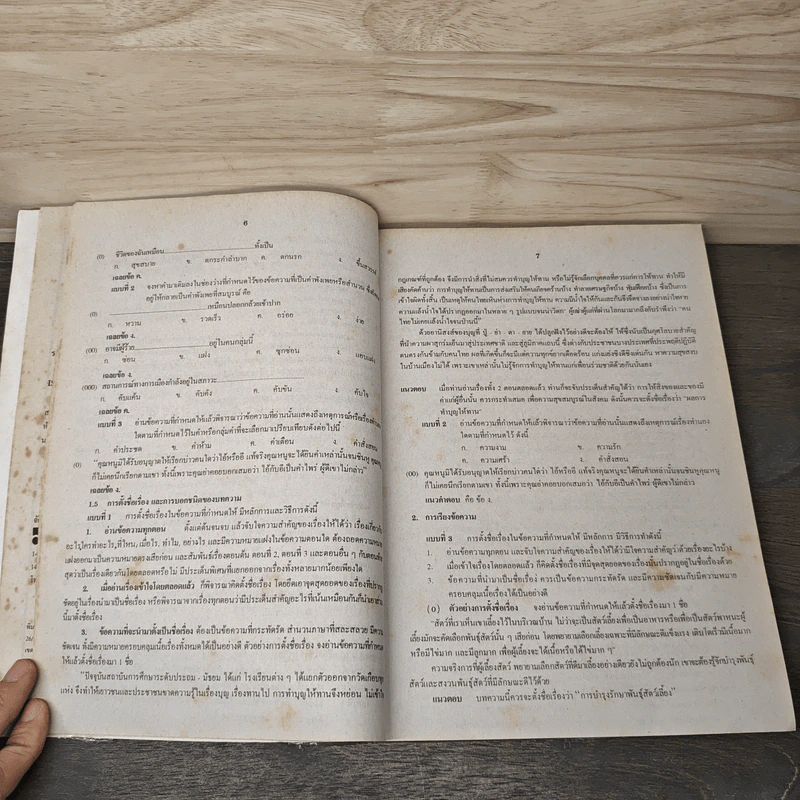 6
(0) ชีวิตของฉันเหมือน............ทั้งเป็น
ก. สุขสบาย ข. ตกระกำลำบาก ค. ตกนรก ง. ขึ้นสวรรค์
เฉลยข้อ ค.
แบบที่ 2 จงหาคำมาเติมลงในช่องว่างที่กำหนดไว้ของข้อความที่เป็นคำพังเพยหรือสำนวน ซึ่งมี
อยู่ให้กลายเป็นคำพังเพยที่สมบูรณ์ คือ
(0) ............เหมือนปลอกกล้วยเข้าปาก
ก. หวาน ข. รวดเร็ว ค. อร่อย ง. ง่าย
เฉลยข้อ ง.
(00) อาจมีผู้ร้าย............อยู่ในคนกลุ่มนี้
ก. ซ่อน ข. แฝง ค. ซุกซ่อน ง. แอบแฝง
เฉลยข้อ ง.
(000) สถานการณ์ทางการเมืองกำลังอยู่ในสภาวะ............
ก. คับแค้น ข. คับคั่ง ค. คับขัน ง. คับใจ
เฉลยข้อ ค.
แบบที่ 3 อ่านข้อความที่กำหนดให้แล้วพิจารณาว่าข้อความที่อ่านนั้นแสดงถึงเหตุการณ์หรือเรื่องทำนอง
ใดตามที่กำหนดไว้ในคำหรือกลุ่มคำที่จะเลือกมาเปรียบเทียบดังต่อไปนี้
ก. คำประชด ข. คำห้าม ค. คำเตือน ง. คำสั่งสอน
(0) "คุณหนูมิได้รับอนุญาตให้เรียกบ่าวคนใดว่า ไอ้หรืออี แท้จริงคุณหนูจะได้ยินคำเหล่านั้นจนชินหู คุณหนู
ก็ไม่เคยนึกเรียกตามเขา ทั้งนี้เพราะคุณย่าคอยบอกเสมอว่า ไอ้กับอีเป็นคำไพร่ ผู้ดีเขาไม่กล่าว"
เฉลยข้อ ง.
1.5 การตั้งชื่อเรื่อง และการบอกชนิดของบทความ
แบบที่ 1 การตั้งชื่อเรื่องในข้อความที่กำหนดให้ มีหลักการและวิธีการดังนี้
1. อ่านข้อความทุกตอน ตั้งแต่ต้นจนจบ แล้วจับใจความสำคัญของเรื่องให้ได้ว่า เรื่องเกี่ยวกับ
อะไร ใครทำอะไร, ที่ไหน, เมื่อไร, ทำไม, อย่างไร และมีความหมายแฝงในข้อความตอนใด ต้องถอดความหมาย
แฝงออกมาเป็นความหมายตรงเสียก่อน และสัมพันธ์เรื่องตอนต้น ตอนที่ 2, ตอนที่ 3 และตอนอื่น ๆ กับตอนท้าย
สุดว่าเป็นเรื่องเดียวกันโดยตลอดหรือไม่ มีประเด็นพิเศษที่แยกออกจากเรื่องทั้งหลายมากน้อยเพียงใด
2. เมื่ออ่านเรื่องเข้าใจโดยตลอดแล้ว ก็พิจารณาคิดตั้งชื่อเรื่อง โดยยึดเอาจุดสุดยอดของเรื่องที่ปรากฏ
ชัดอยู่ในเรื่องนำมาเป็นชื่อเรื่อง หรือพิจารณาจากเรื่องทุกตอนว่ามีประเด็นสำคัญอะไรที่เน้นเหมือนกันก็นำเอา
นี้มาตั้งชื่อเรื่อง
3. ข้อความที่จะนำมาตั้งเป็นชื่อเรื่อง ต้องเป็นข้อความที่กระทัดรัด สำนวนภาษาที่สละสลวย มีความ
ชัดเจน ทั้งมีความหมายครอบคลุมเนื้อเรื่องทั้งหมดได้เป็นอย่างดี ตัวอย่างการตั้งชื่อเรื่อง จงอ่านข้อความที่กำหนด
ให้แล้วตั้งชื่อเรื่องมา 1 ชื่อ
"ปัจจุบันสถาบันการศึกษาระดับประถม - มัธยม ได้แก่ โรงเรียนต่าง ๆ ได้แยกตัวออกจากวัดเกือบทุก
แห่ง จึงทำให้เยาวชนและประชาชนขาดความรู้ในเรื่องบุญ เรื่องทานไป การทำบุญให้ทานจึงหย่อน ไม่เข้าใจ
7
กฎเกณฑ์ที่ถูกต้อง จึงมีการนำสิ่งที่ไม่สมควรทำบุญให้ทาน หรือไม่รู้จักเลือกบุคคลที่ควรแก่การให้ทาน ทำให้มี
เสียงคัดค้านว่า การทำบุญให้ทานเป็นการส่งเสริมให้คนเกียจคร้านบ้าง ทำลายเศรษฐกิจบ้าง ฟุ่มเฟือยบ้าง ซึ่งเป็นการ
เข้าใจผิดทั้งสิ้น เป็นเหตุให้คนไทยเหินห่างการทำบุญให้ทาน ความมีน้ำใจให้กันและกันจึงจืดจางลงอย่างน่าใจหาย
ความแล้งน้ำใจได้ปรากฏออกมาในหลาย ๆ รูปแบบจนน่าวิตก" ผู้เฒ่าผู้แก่ที่ผ่านโลกมามากถึงกับรำพึงว่า "คน
ไทยไม่เคยแล้งน้ำใจจนป่านนี้"
ด้วยอานิสงส์ของบุญที่ ปู่ - ย่า - ตา - ยาย ได้ปลูกฝังไว้อย่างดีจะต้องให้ ให้ซึ่งนับเป็นกุศโลบายสำคัญ
ที่นำความผาสุกร่มเย็นมาสู่ประเทศชาติ และสู่ภูมิภาคแถบนี้ ซึ่งต่างกับประชาชนบางประเทศที่ประพฤติปฏิบัติ
ตนตรงกันข้ามกับคนไทย ผลที่เกิดขึ้นก็จะมีแต่ความทุกข์ยากเดือดร้อน แก่งแย่งชิงดีชิงเด่นกัน หาความสุขสงบ
ในบ้านเมืองไม่ได้ เพราะเขาเหล่านั้นไม่รู้จักการทำบุญให้ทานแก่เพื่อนร่วมชาติด้วยกันนั่นเอง
แนวตอบ เมื่อท่านอ่านเรื่องทั้ง 2 ตอนตลอดแล้ว ท่านก็จะจับประเด็นสำคัญได้ว่า การให้สิ่งของและของมี
ค่าแก่ผู้อื่นนั้น ควรกระทำเสมอ เพื่อความสุขสมบูรณ์ในสังคม ดังนั้นควรจะตั้งชื่อเรื่องว่า "ผลการ
ทำบุญให้ทาน"
แบบที่ 2 อ่านข้อความที่กำหนดให้แล้วพิจารณาว่าข้อความที่อ่านนั้นแสดงถึงเหตุการณ์เรื่องทำนอง
ใดตามที่กำหนดไว้ ดังนี้
ก. ความงาม ข. ความรัก
ค. ความเศร้า ง. คำสั่งสอน
(00) คุณหนูมิได้รับอนุญาตให้เรียกบ่าวคนใดว่า ไอ้หรืออี แท้จริงคุณหนูจะได้ยินคำเหล่านั้นจนชินหูคุณหนู
ก็ไม่เคยนึกเรียกตามเขา ทั้งนี้ เพราะคุณย่าคอยบอกเสมอว่า ไอ้กับอีเป็นคำไพร่ ผู้ดีเขาไม่กล่าว
แนวคำตอบ คือ ข้อ ง.
2. การเรียงข้อความ
แบบที่ 3 การตั้งชื่อเรื่องในข้อความที่กำหนดให้ มีหลักการ มีวิธีการทำดังนี้
1. อ่านข้อความทุกตอน และจับใจความสำคัญของเรื่องให้ได้ว่ามีใจความสำคัญว่าด้วยเรื่องอะไรบ้าง
2. เมื่อเข้าใจเรื่องโดยตลอดแล้ว ก็คิดตั้งชื่อเรื่องที่มีจุดสุดยอดของเรื่องนั้นปรากฏอยู่ในชื่อเรื่องด้วย
3. ข้อความที่นำมาเป็นชื่อเรื่อง ควรเป็นข้อความกระทัดรัด และมีความชัดเจนมีความหมาย
ครอบคลุมเนื้อเรื่องได้เป็นอย่างดี
(0) ตัวอย่างการตั้งชื่อเรื่อง จงอ่านข้อความที่กำหนดให้แล้วตั้งชื่อเรื่องมา 1 ชื่อ
"สัตว์ที่เราเห็นเขาเลี้ยงไว้ในบริเวณบ้าน ไม่ว่าจะเป็นสัตว์เลี้ยงเพื่อเป็นอาหารหรือเพื่อเป็นสัตว์พาหนะผู้
เลี้ยงมักจะคัดเลือกพันธุ์สัตว์นั้น ๆ เสียก่อน โดยพยายามเลือกเลี้ยงเฉพาะที่มีลักษณะดีแข็งแรง เติบโตเร็วมีเนื้อมาก
หรือมีไข่มาก และมีลูกมาก เพื่อผู้เลี้ยงจะได้เนื้อหรือได้ไข่มาก ๆ"
ความจริงการที่ผู้เลี้ยงสัตว์ พยายามเลือกสัตว์ที่ดีมาเลี้ยงอย่างเดียวยังไม่ถูกต้องนัก เขาจะต้องรู้จักบำรุงพันธุ์
สัตว์และสงวนพันธุ์สัตว์ที่มีลักษณะดีไว้ด้วย
แนวตอบ บทความนี้ควรจะตั้งชื่อเรื่องว่า "การบำรุงรักษาพันธุ์สัตว์เลี้ยง"